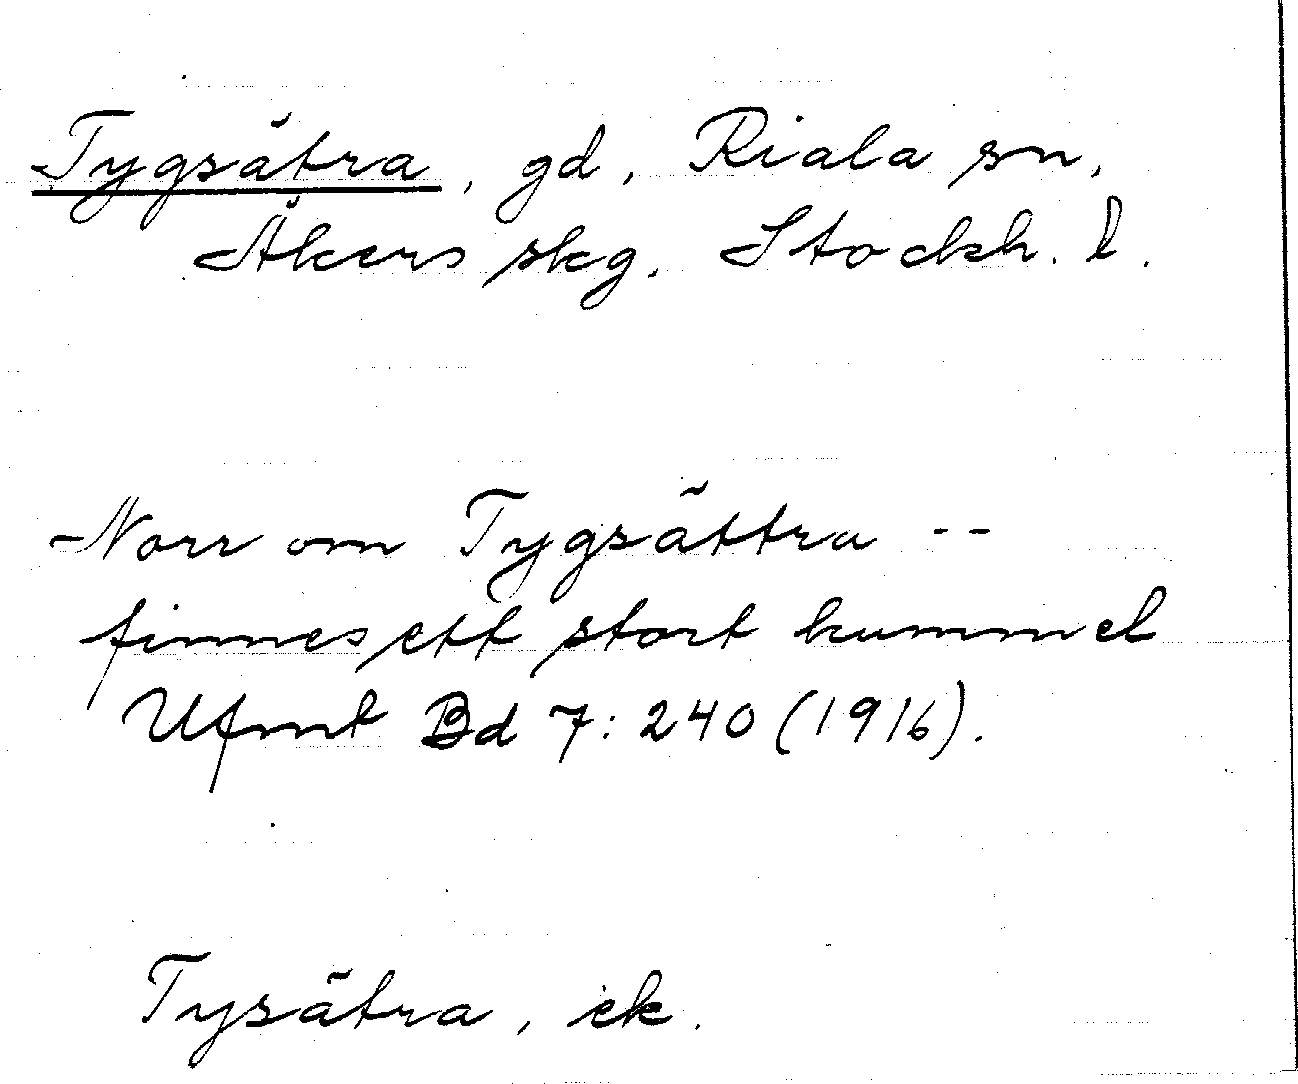 Tygsätra, gd, Riala sn,
Åkers skg. Stockh. l.
Norr om Tygsättra --
finnes ett stort kummel
Ufmt Bd 7: 240 (1916).
Tysätra, ek.